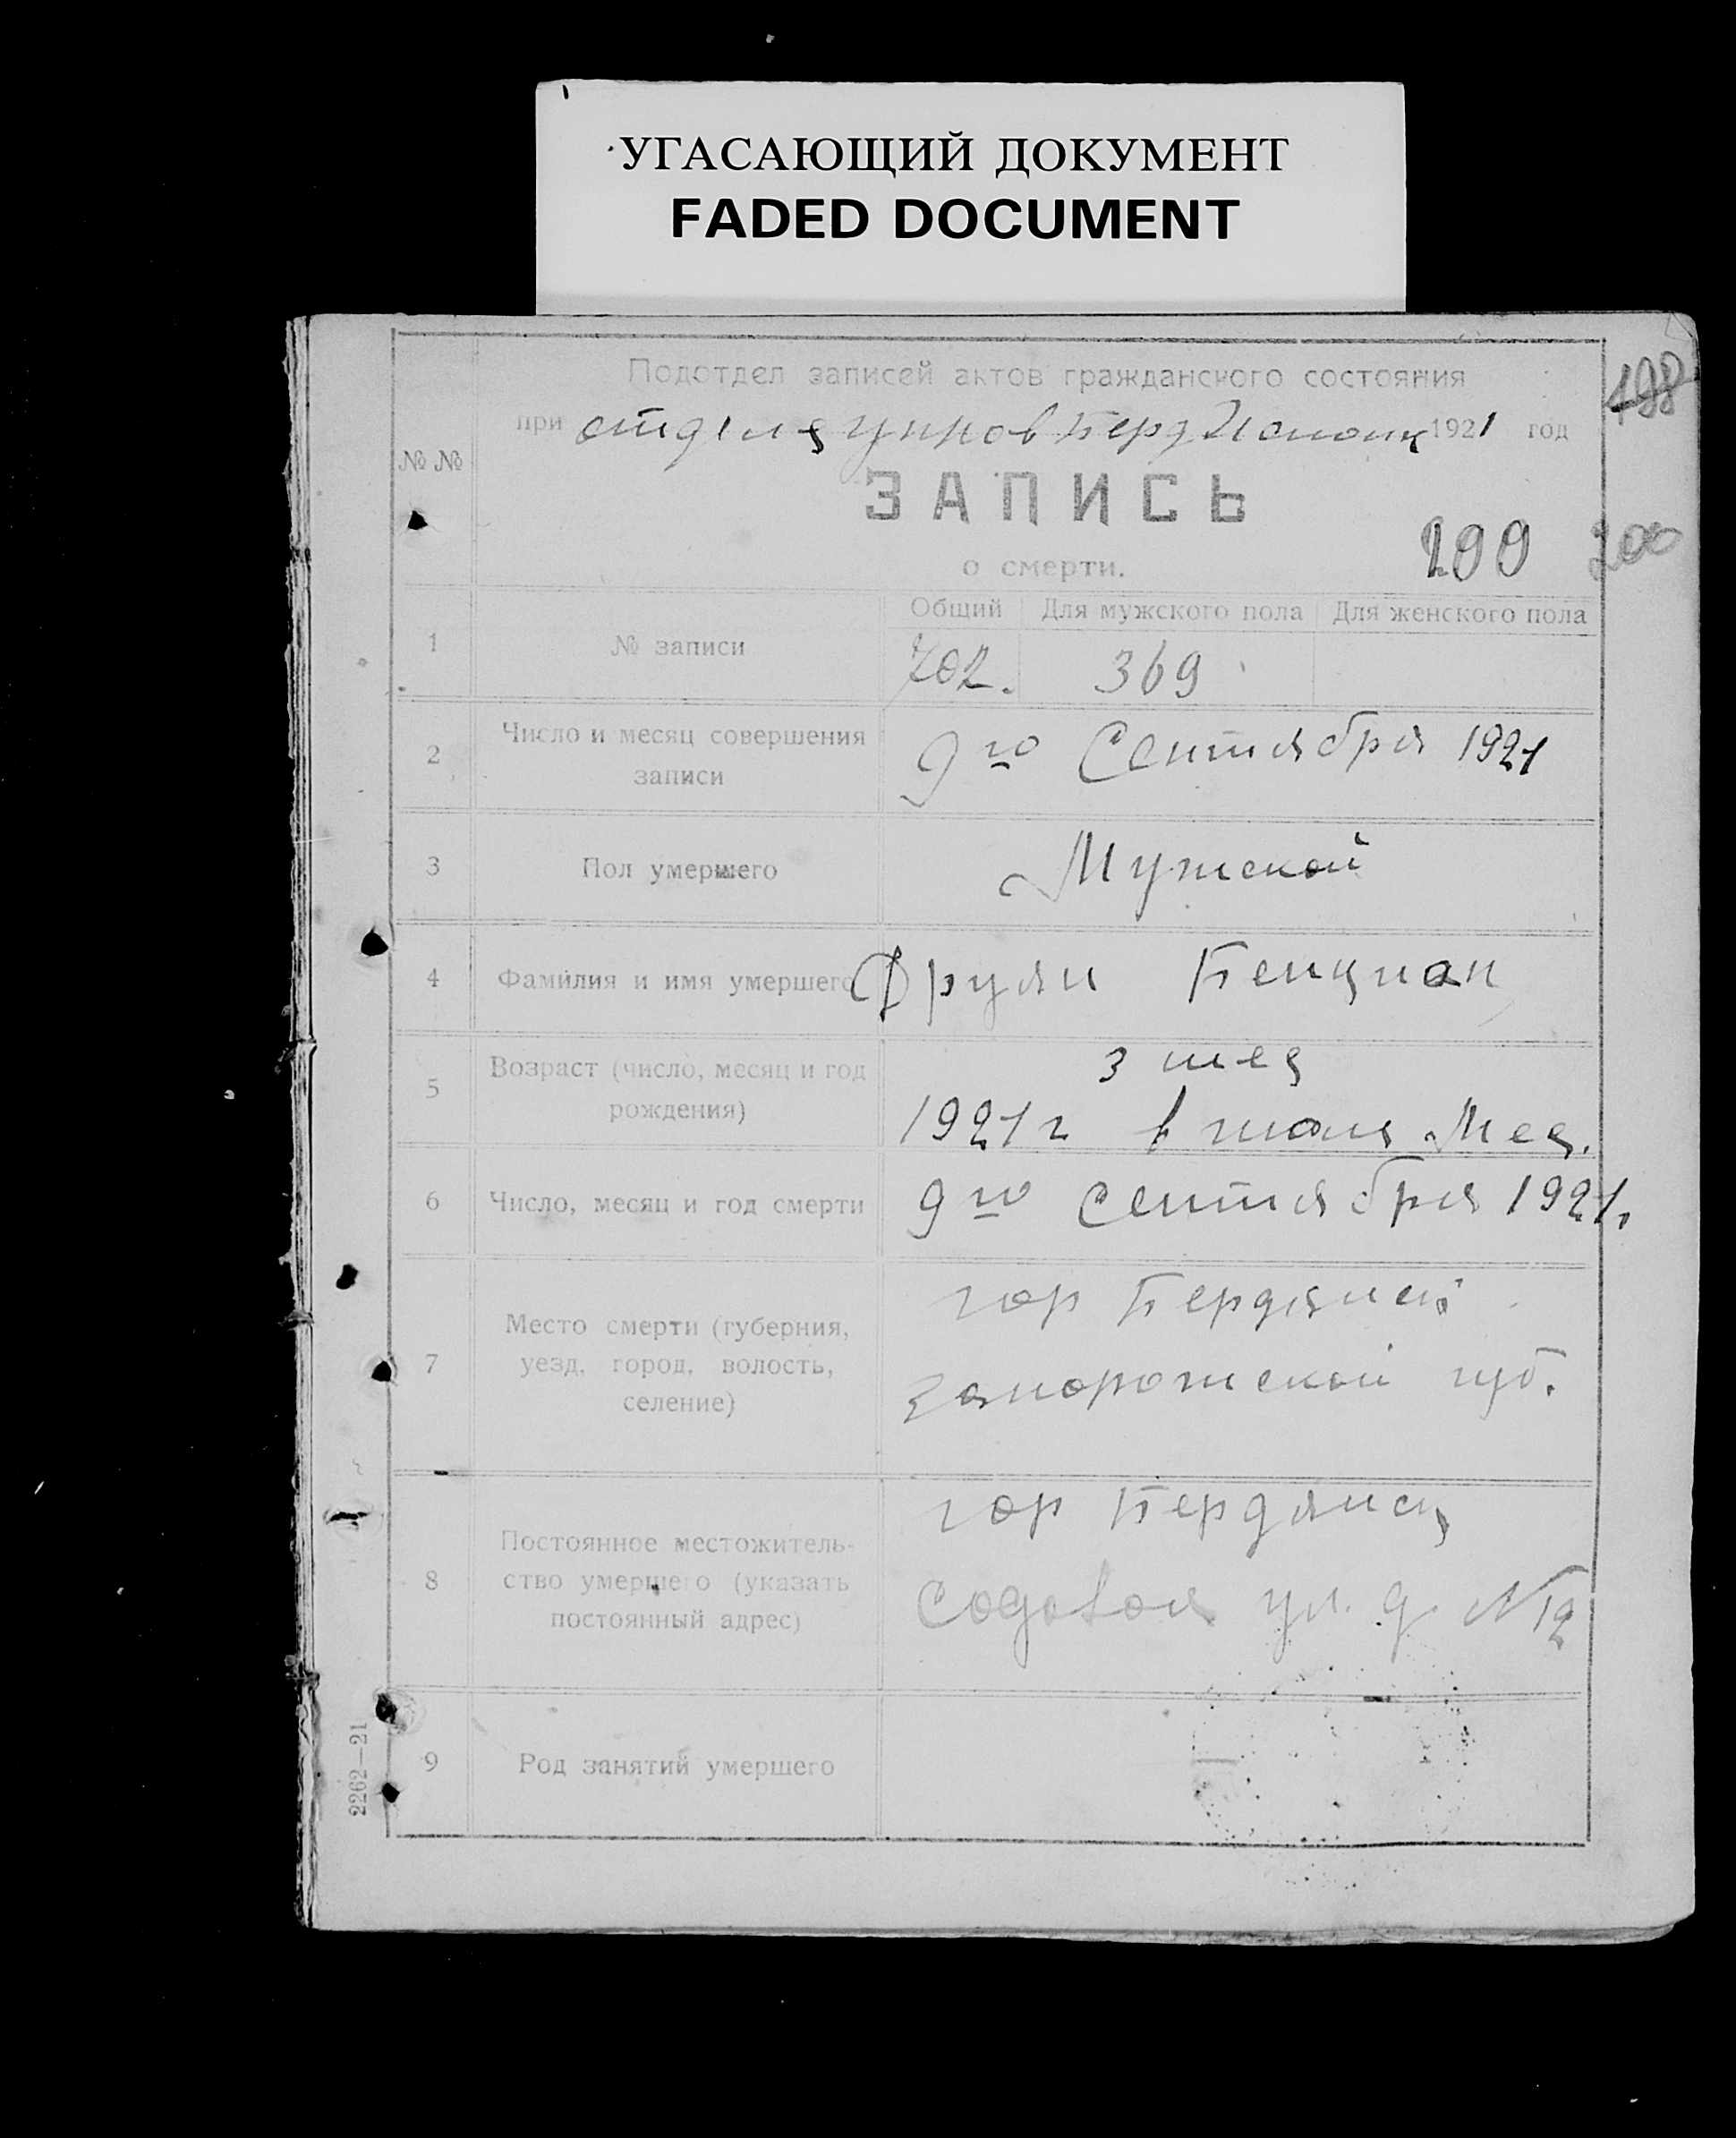 УГАСАЮЩИЙ ДОКУМЕНТ
FADED DOCUMENT
198
Подотдел записей актов гражданского состояния
при отделя управ Берд Исполк 1921 год
№ №
ЗАПИСЬ
о смерти.
199 200
Общий Для мужского пола Для женского пола
1 № записи 702. 369
2 Число и месяц совершения записи 9го Сентября 1921
3 Пол умершего Мужской
4 Фамилия и имя умершего Друян Бенцион
5 Возраст (число, месяц и год рождения) 3 мес
1921 г в июня Мес.
6 Число, месяц и год смерти 9го Сентября 1921.
7 Место смерти (губерния, уезд, город, волость, селение) гор Бердянск
Запорожской губ.
8 Постоянное местожительство умершего (указать постоянный адрес) гор Бердянск
Садовая ул. д № 12
9 Род занятий умершего
2262—21